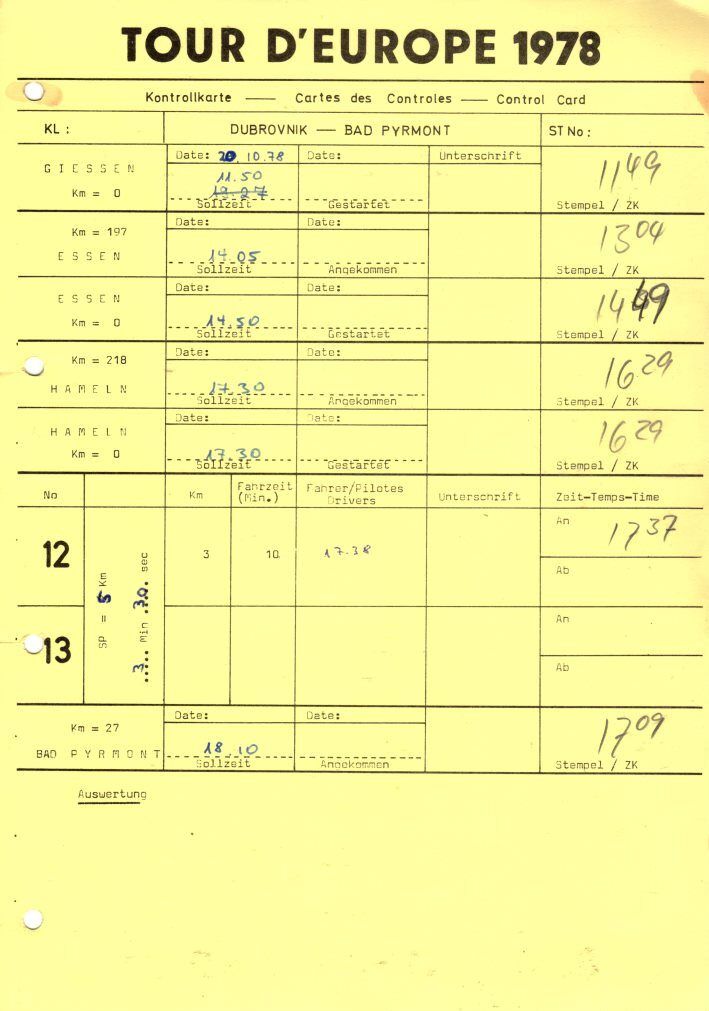 TOUR D'EUROPE 1978
Kontrollkarte — Cartes des Controles — Control Card
KL: DUBROVNIK — BAD PYRMONT ST No:
GIESSEN Date: 20.10.78 Date: Unterschrift 1149
Km = 0 11.50 13.27 Sollzeit Gestartet Stempel / ZK
Km = 197 Date: Date: 1304
ESSEN 14.05 Sollzeit Angekommen Stempel / ZK
ESSEN Date: Date: 1449
Km = 0 14.50 Sollzeit Gestartet Stempel / ZK
Km = 218 Date: Date: 1629
HAMELN 17.30 Sollzeit Angekommen Stempel / ZK
HAMELN Date: Date: 1629
Km = 0 17.30 Sollzeit Gestartet Stempel / ZK
No Km Fahrzeit (Min.) Fahrer/Pilotes Drivers Unterschrift Zeit-Temps-Time
12 3 10. 17.38 An 1737
Ab
SP = 5 Km
3 Min 30. sec
13 An
Ab
Km = 27 Date: Date: 1709
BAD PYRMONT 18.10 Sollzeit Angekommen Stempel / ZK
Auswertung